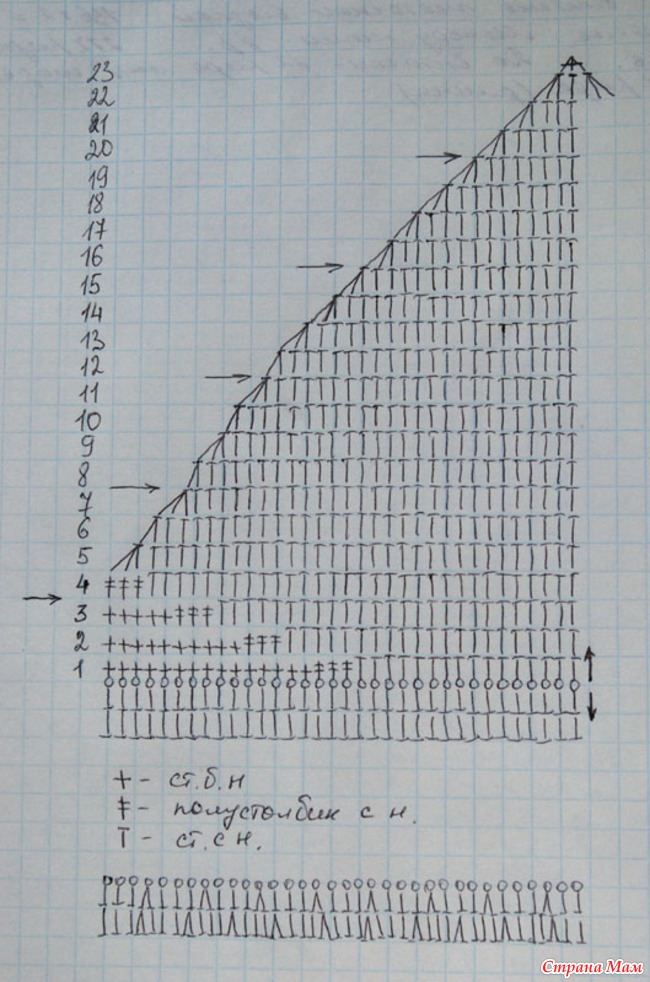 23
22
21
20
19
18
17
16
15
14
13
12
11
10
9
8
7
6
5
4
3
2
1
+ - ст.б.н
ǂ - полустолбик с н.
T - ст.с н.
Страна Мам